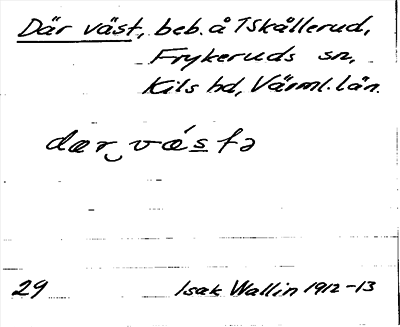 Där väst, beb. å TSkållerud,
Frykeruds sn,
Kils hd, Värml. län.
dær‿vásfə
29 Isak Wallin 1912-13